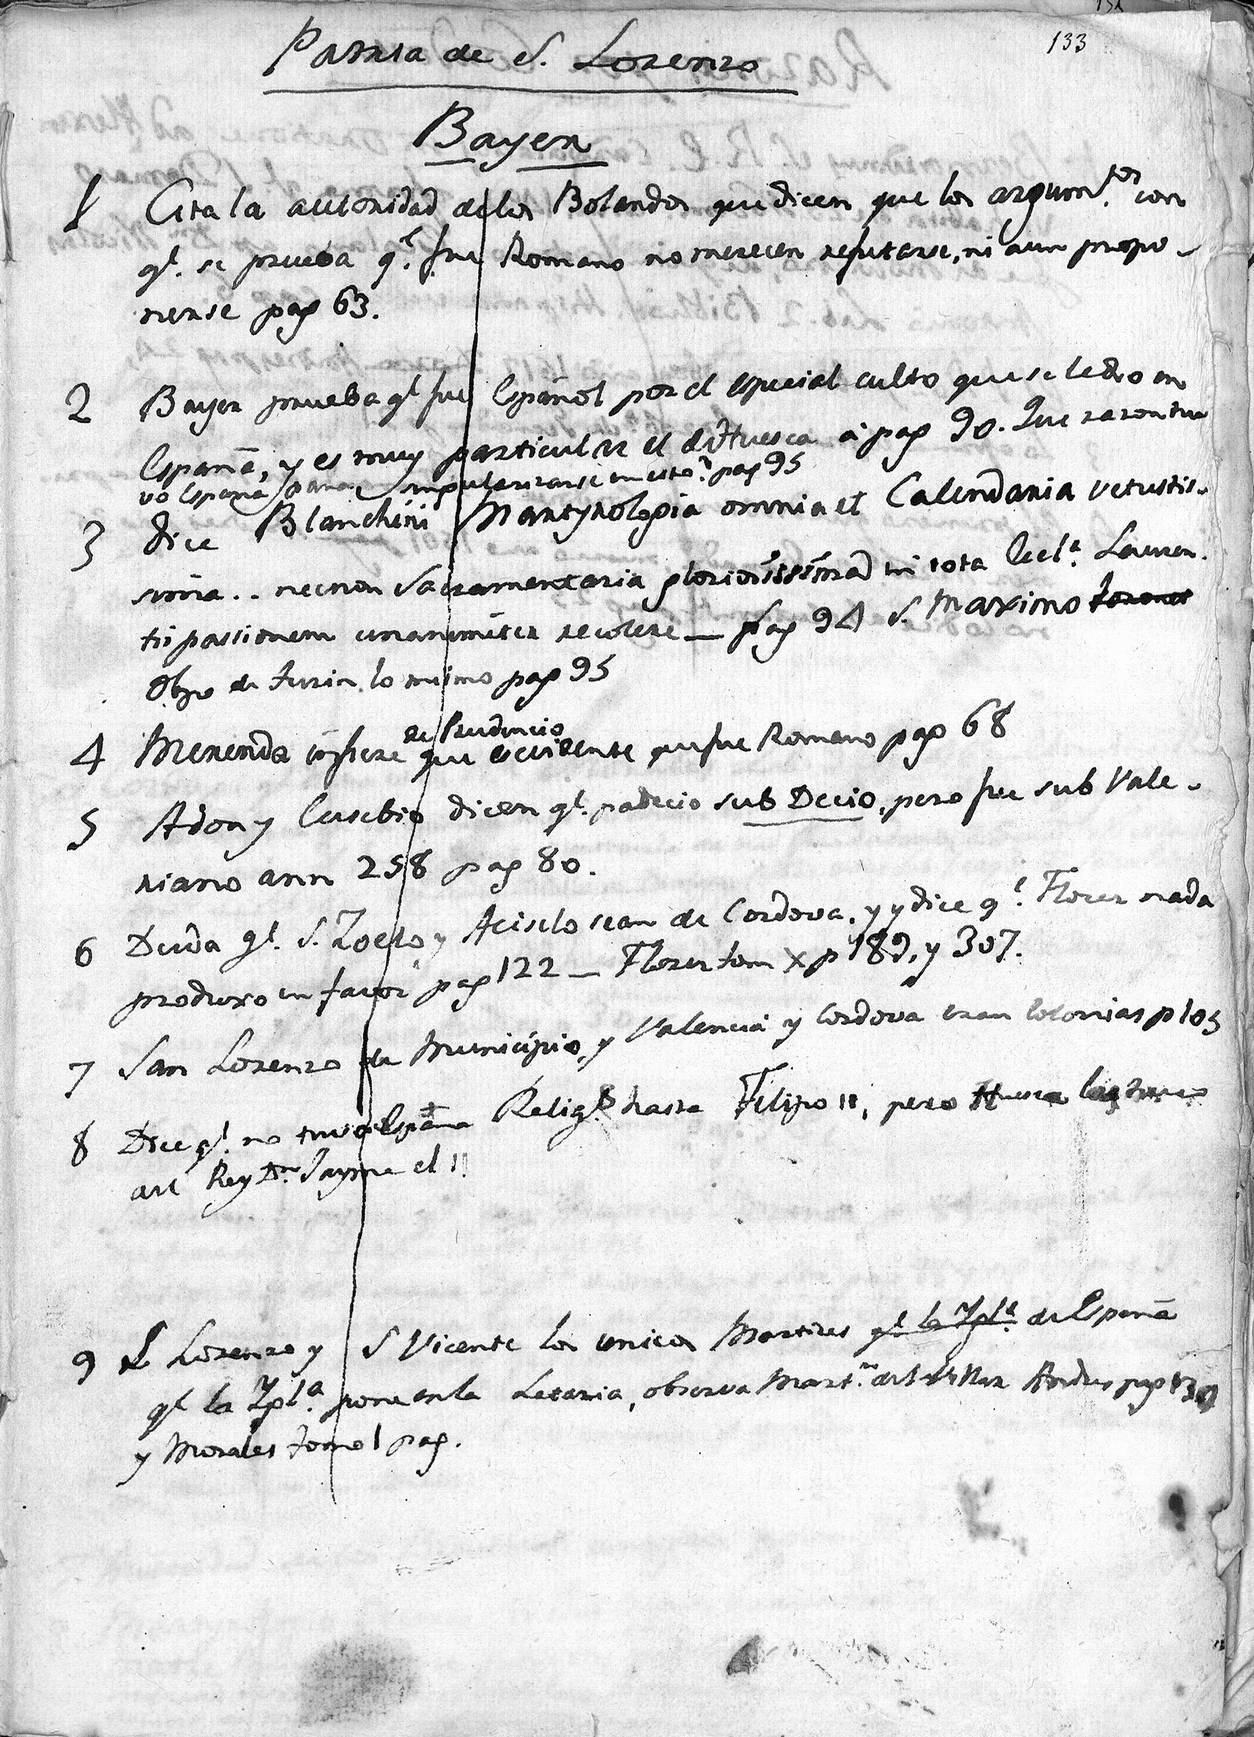 133
Patria de S. Lorenzo
Bayer
1 Cita la autoridad de los Bolandos que dicen que los argum.tos con
q.e se prueba q.e fue Romano no merecen refutarse, ni aun propo-
nerse pag 63.
2 Bayer prueba q.e fue Español por el especial culto que se le dio en
España, y es muy particular el de Huesca á pag 90. Que razon tu
vo España para singularizarse en esto? pag 95
3 Dice Blanchini Martyrologia omnia et Calendaria vetustis-
sima .. necnon Sacramentaria gloriosissimad in tota Eccl.a Lauren
tii passionem unanimiter recolere — pag 94 S. Maximo
Obpo de Turin lo mismo pag 95
4 Merenda infiere de Prudencio que evidente que fue Romano pag 68
5 Adon y Eusebio dicen q.e padecio sub Decio, pero fue sub Vale-
riano ann 258 pag 80.
6 Duda q.e S. Zoelo y Acisclo sean de Cordova, y y dice q.e Florez nada
produxo en favor pag 122 — Florez tom X p 189, y 307.
7 San Lorenzo de Municipio, y Valencia y Cordova eran Colonias p 105
8 Dice q.e no tuvo España Relig.s hasta Filipo II, pero Huesca las tuvo
del Rey Dn. Jayme el II
9 S Lorenzo y S Vicente los unicos Martires q.e la Igl.a de España
q.e la Igl.a pone en la Letania, observa Mart.n del Villar Andres pag 130
y Morales tomo 1 pag.